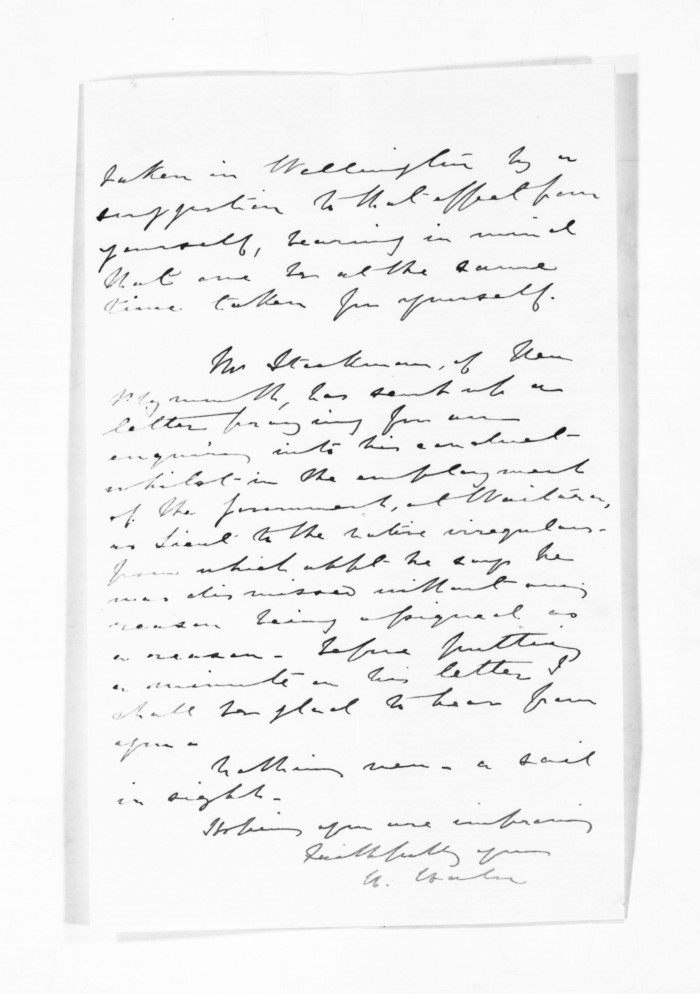 taken in Wellington by a
suggestion to that effect from
yourself, bearing in mind
that one be at the same
time taken for yourself.
Mr Stockman, of New
Plymouth, has sent up a
letter praying for an
enquiry into his conduct
whilst in the employment
of the Government, at Waitara,
as Lieut to the native irregulars -
from which appt he says he
was dismissed without any
reason being assigned as
a reason - Before putting
a minute on his letter I
shall be glad to hear from
you -
Nothing new - a sail
in sight -
Hoping you are improving
Faithfully yours